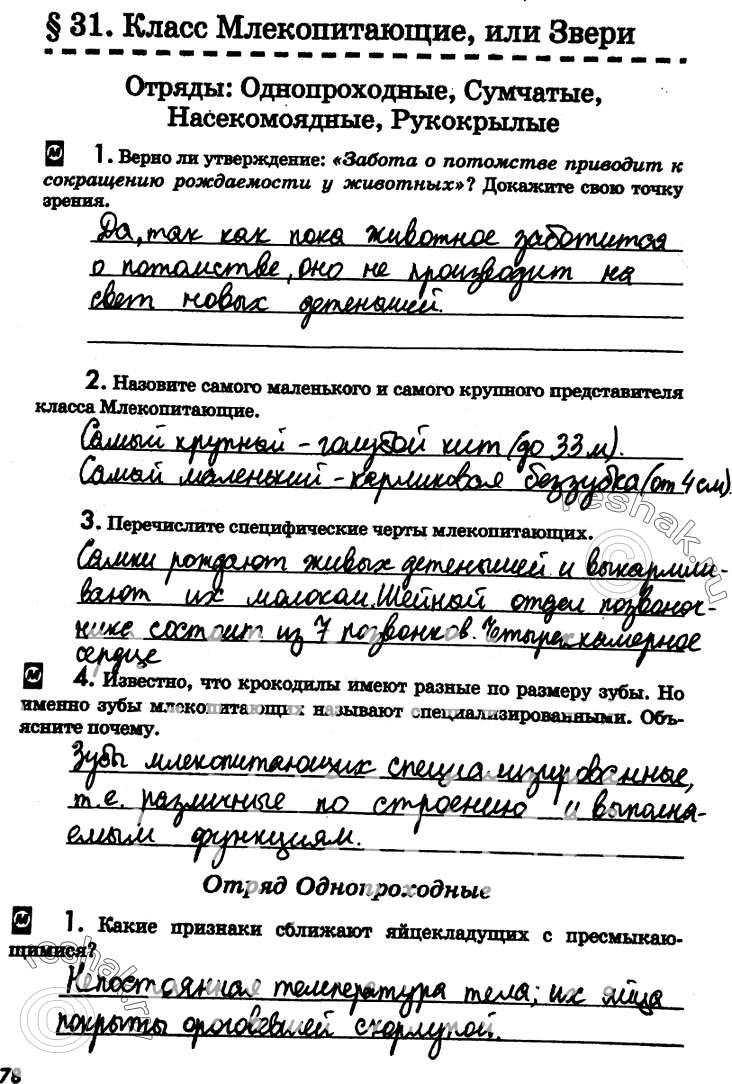 § 31. Класс Млекопитающие, или Звери
Отряды: Однопроходные, Сумчатые,
Насекомоядные, Рукокрылые
1. Верно ли утверждение: «Забота о потомстве приводит к
сокращению рождаемости у животных»? Докажите свою точку
зрения.
Да, так как пока животное заботится
о потомстве, оно не производит на
свет новых детенышей.
2. Назовите самого маленького и самого крупного представителя
класса Млекопитающие.
Самый крупный - голубой кит (до 33 м).
Самый маленький - карликовая беззубка (от 4 см).
3. Перечислите специфические черты млекопитающих.
Самки рождают живых детенышей и выкармли-
вают их молоком. Шейный отдел позвоноч-
нике состоит из 7 позвонков. Четырехкамерное
сердце
4. Известно, что крокодилы имеют разные по размеру зубы. Но
именно зубы млекопитающих называют специализированными. Объ-
ясните почему.
Зубы млекопитающих специализированные,
т.е. различные по строению и выполня-
емым функциям.
Отряд Однопроходные
1. Какие признаки сближают яйцекладущих с пресмыкаю-
щимися?
Непостоянная температура тела; их яйца
покрыты ороговевшей скорлупой.
78
reshak.ru
reshak.ru